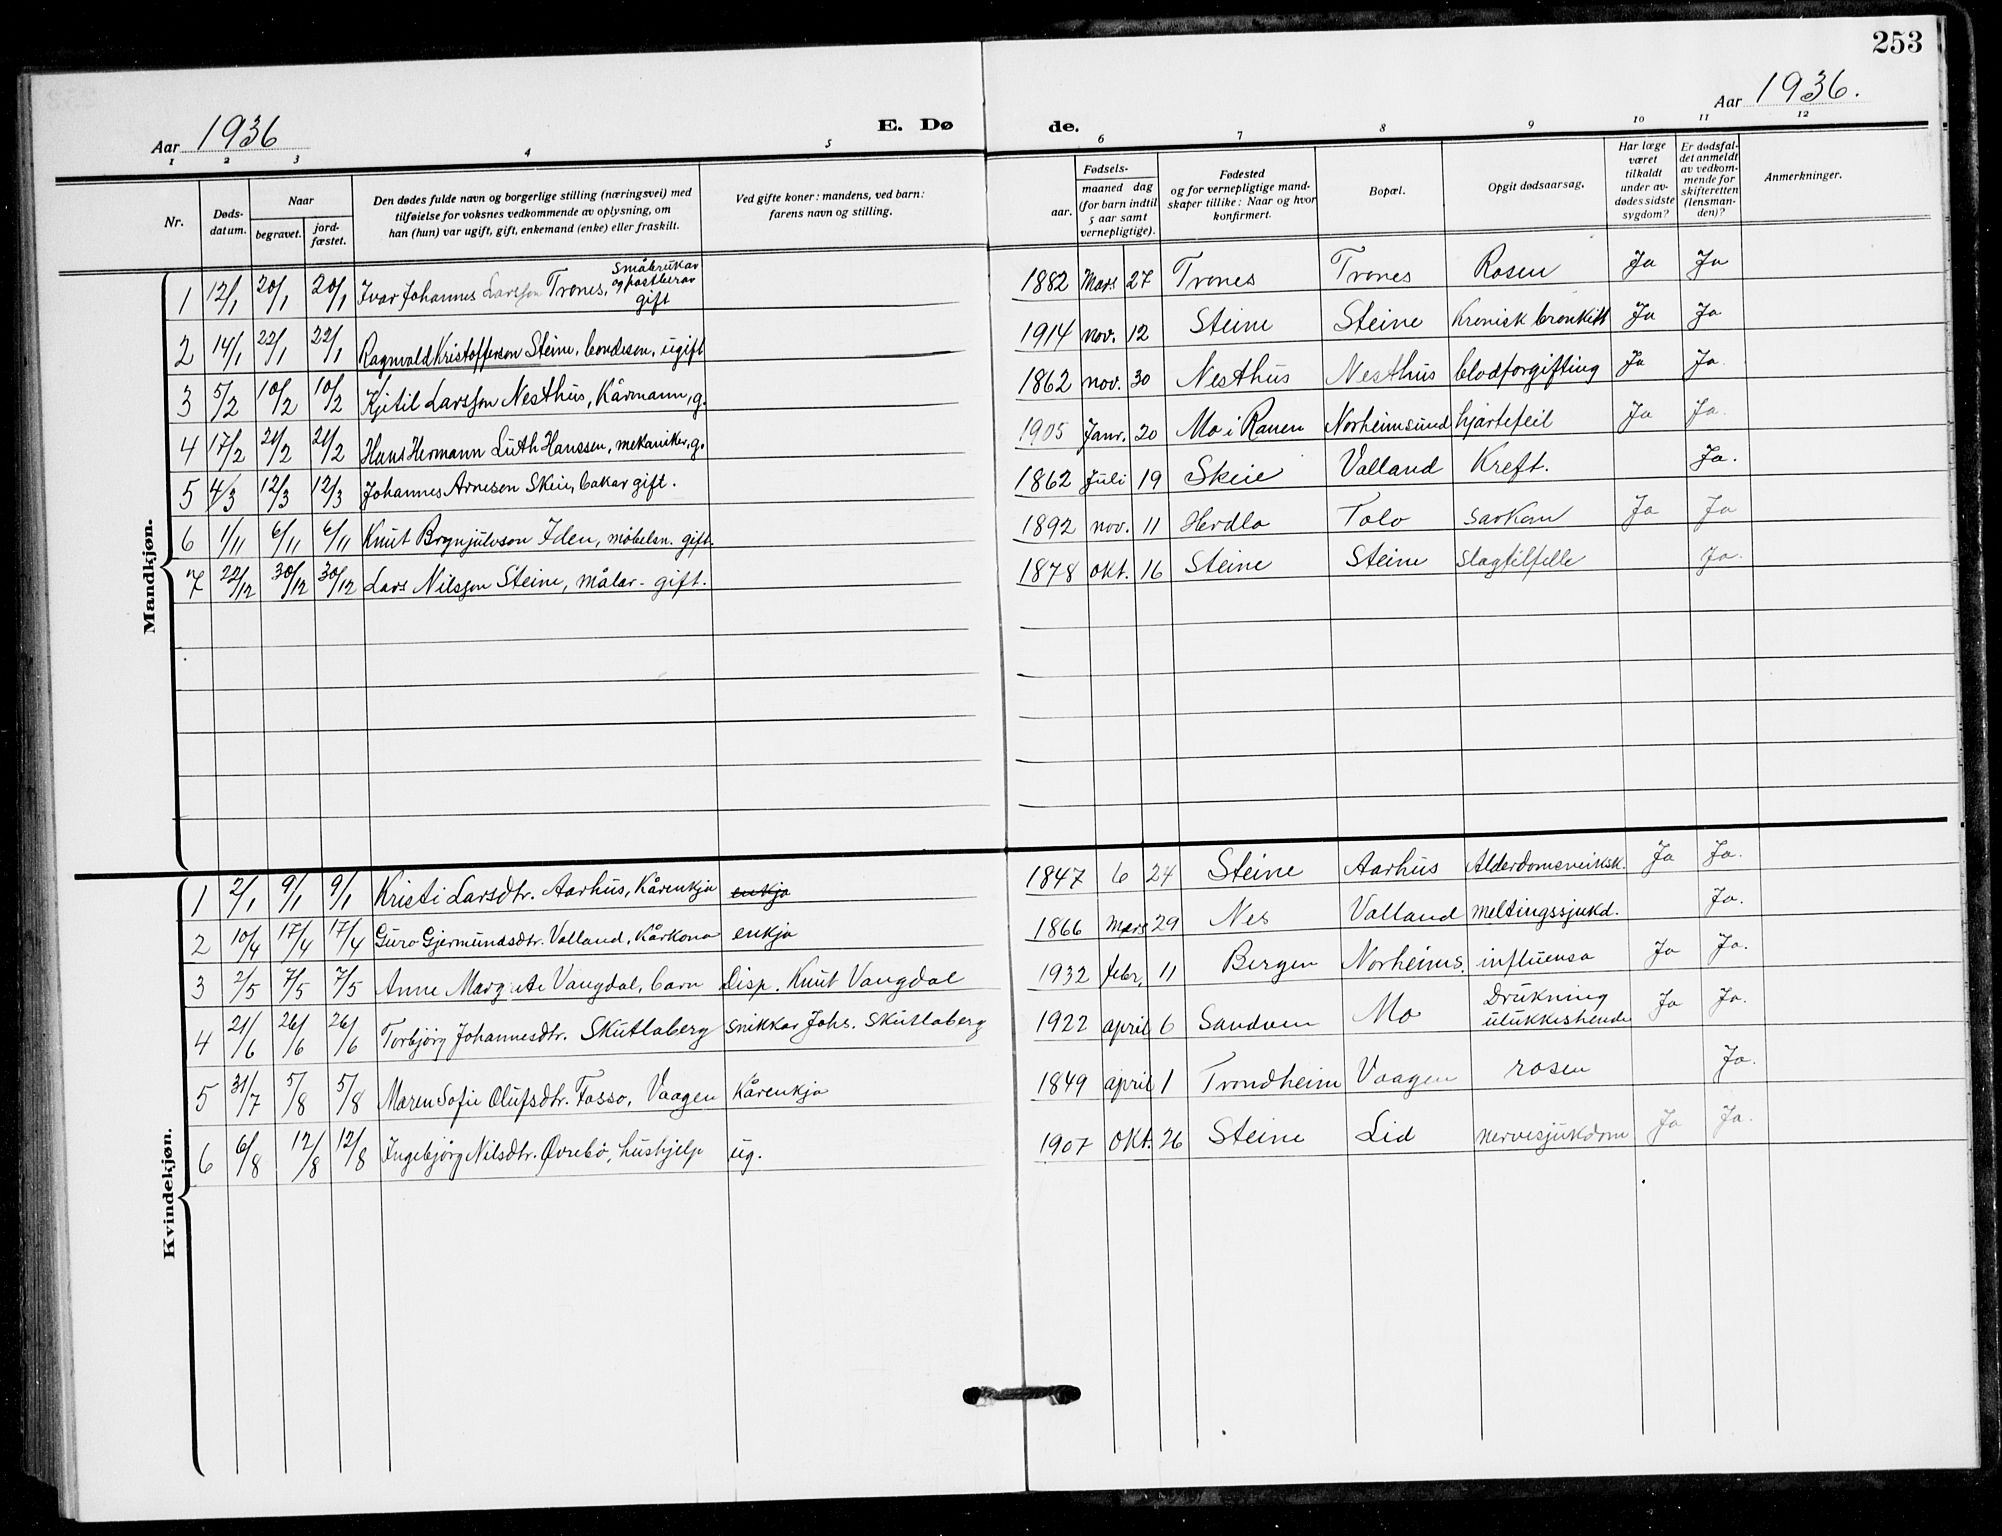 253
Aar 1936
E. Dø
de.
Aar 1936.
1 2 3 4 5 6 7 8 9 10 11 12
Nr.
Døds-
datum.
Naar
begravet.
jord-
fæstet.
Den dødes fulde navn og borgerlige stilling (næringsvei) med
tilføielse for voksnes vedkommende av oplysning, om
han (hun) var ugift, gift, enkemand (enke) eller fraskilt.
Ved gifte koner: mandens, ved barn:
farens navn og stilling.
Fødsels-
aar.
maaned dag
(for barn indtil
5 aar samt
vernepligtige).
Fødested
og for vernepligtige mand-
skaper tillike: Naar og hvor
konfirmert.
Bopæl.
Opgit dødsaarsag.
Har læge
været
tilkaldt
under av-
dødes sidste
sygdom?
Er dødsfal-
det anmeldt
av vedkom-
mende for
skifteretten
(lensman-
den)?
Anmerkninger.
Mandkjøn.
småbrukar
og postberar
1 12/1 20/1 20/1 Ivar Johannes Larsson Trones, gift 1882 Mars 27 Trones Trones Rosen Ja Ja
2 14/1 22/1 22/1 Ragnvald Kristofferson Steine, bondeson, ugift 1914 nov. 12 Steine Steine Kronisk bronkitt Ja Ja
3 5/2 10/2 10/2 Kjetil Larsson Nesthus, Kårmann, g. 1862 nov. 30 Nesthus Nesthus blodforgifting Ja Ja.
4 17/2 21/2 21/2 Hans Hermann Luth Hanssen, mekaniker, g. 1905 Janr. 20 Mo i Ranen Norheimsund hjartefeil Ja Ja.
5 4/3 12/3 12/3 Johannes Arneson Skeie, bakar gift. 1862 Juli 19 Skeie Valland Kreft. Ja.
6 1/11 6/11 6/11 Knut Brynjulvson Iden, møbelsn. gift. 1892 nov. 11 Herdla Tolo sarkom Ja Ja
7 22/12 30/12 30/12 Lars Nilsson Steine, målar - gift. 1878 okt. 16 Steine Steine slagtilfelle Ja.
Kvindekjøn.
1 2/1 9/1 9/1 Kristi Larsdtr. Aarhus, Kårenkja enkja 1847 6 24 Steine Aarhus Alderdomsveiksk. Ja Ja.
2 10/4 17/4 17/4 Guro Gjermundsdtr. Valland, Kårkona enkja 1866 Mars 29 Nes Valland meltingssjukd. Ja.
3 2/5 7/5 7/5 Anne Margrete Vangdal, barn Disp. Knut Vangdal 1932 febr. 11 Bergen Norheims. influensa Ja Ja.
4 21/6 26/6 26/6 Torbjørg Johannesdtr. Skutlaberg snikkar Johs. Skutlaberg 1922 april 6 Sandven Mo Drukning
ulukkeshende Ja Ja.
5 31/7 5/8 5/8 Maren Sofie Olufsdtr. Fosso, Vaagen Kårenkja 1849 april 1 Trondheim Vaagen rosen Ja.
6 6/8 12/8 12/8 Ingebjørg Nilsdtr. Øvrebø, hushjelp ug. 1907 okt. 26 Steine Lid nervesjukdom Ja Ja.